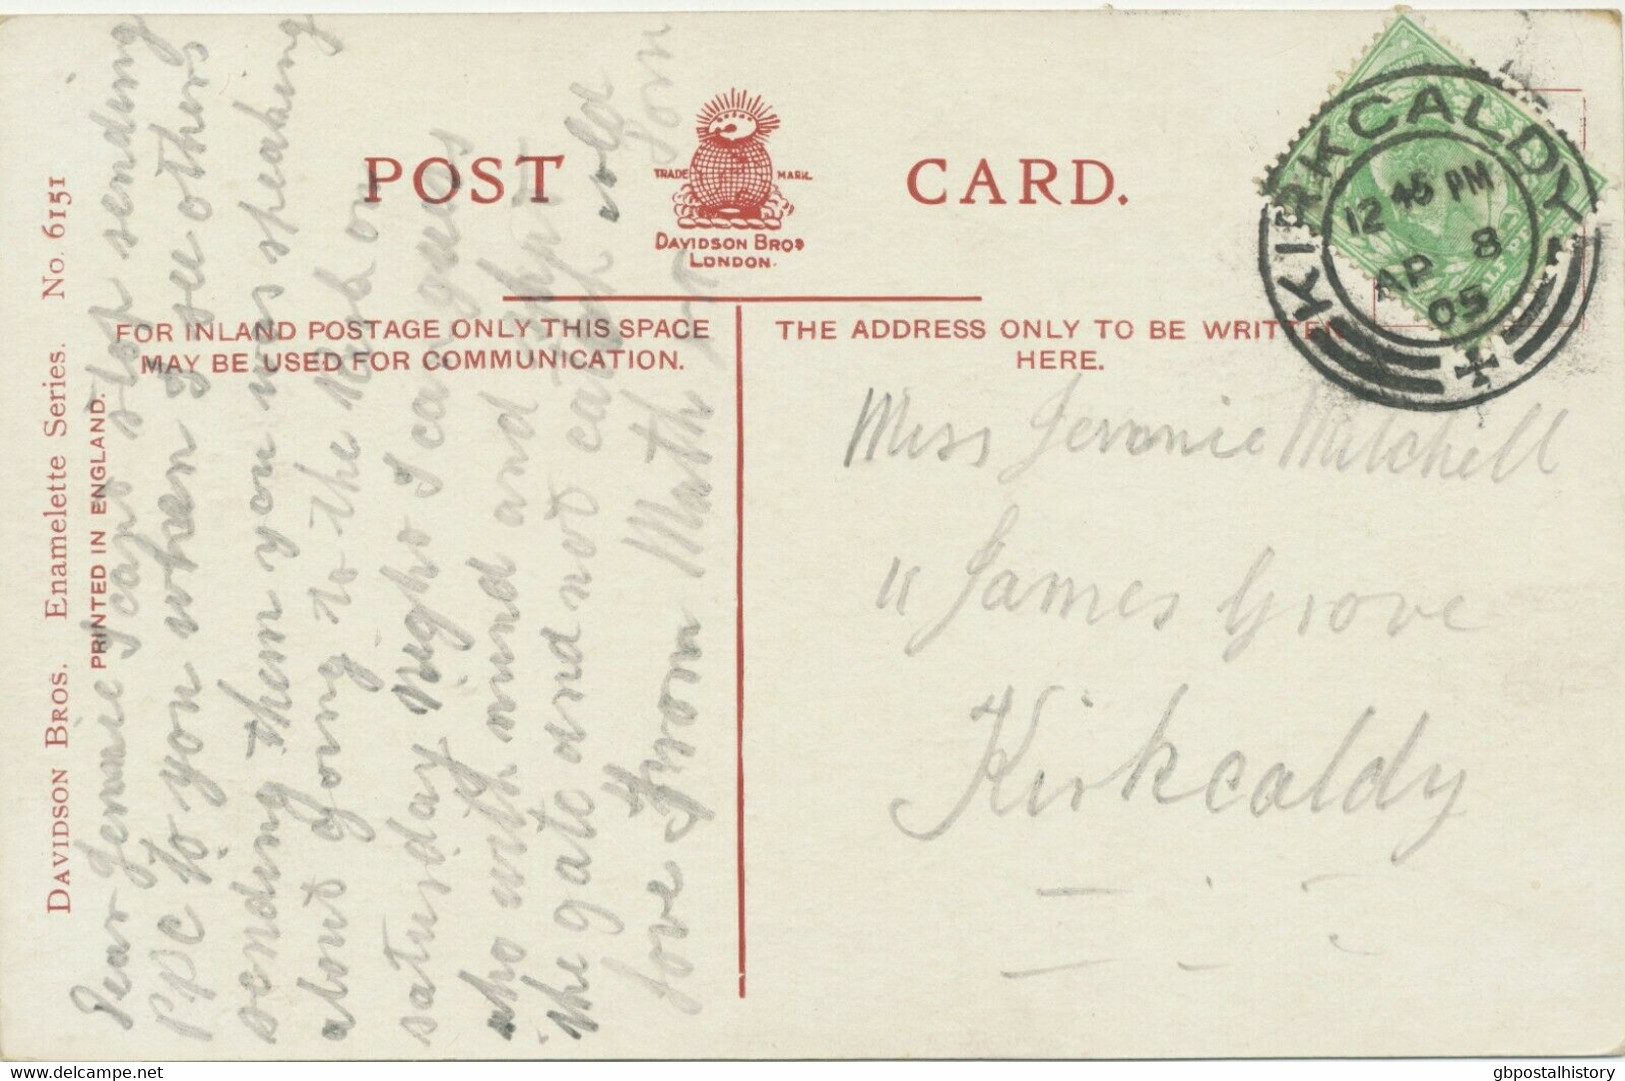 POST CARD.
TRADE MARK.
DAVIDSON BROS
LONDON.
FOR INLAND POSTAGE ONLY THIS SPACE
MAY BE USED FOR COMMUNICATION.
THE ADDRESS ONLY TO BE WRITTEN
HERE.
DAVIDSON BROS. Enamelette Series. No. 6151
PRINTED IN ENGLAND.
KIRKCALDY
12 45 PM
AP 8
05
Dear Jennie I cant stop sending
PPC to you when I see others
sending them you was speaking
about going to the on
saturday night I can guess
who with mind and shut
the gate and not catch cold
love from
Miss Mitchell
11 James Grove
Kirkcaldy
delcampe.net
gbpostalhistory